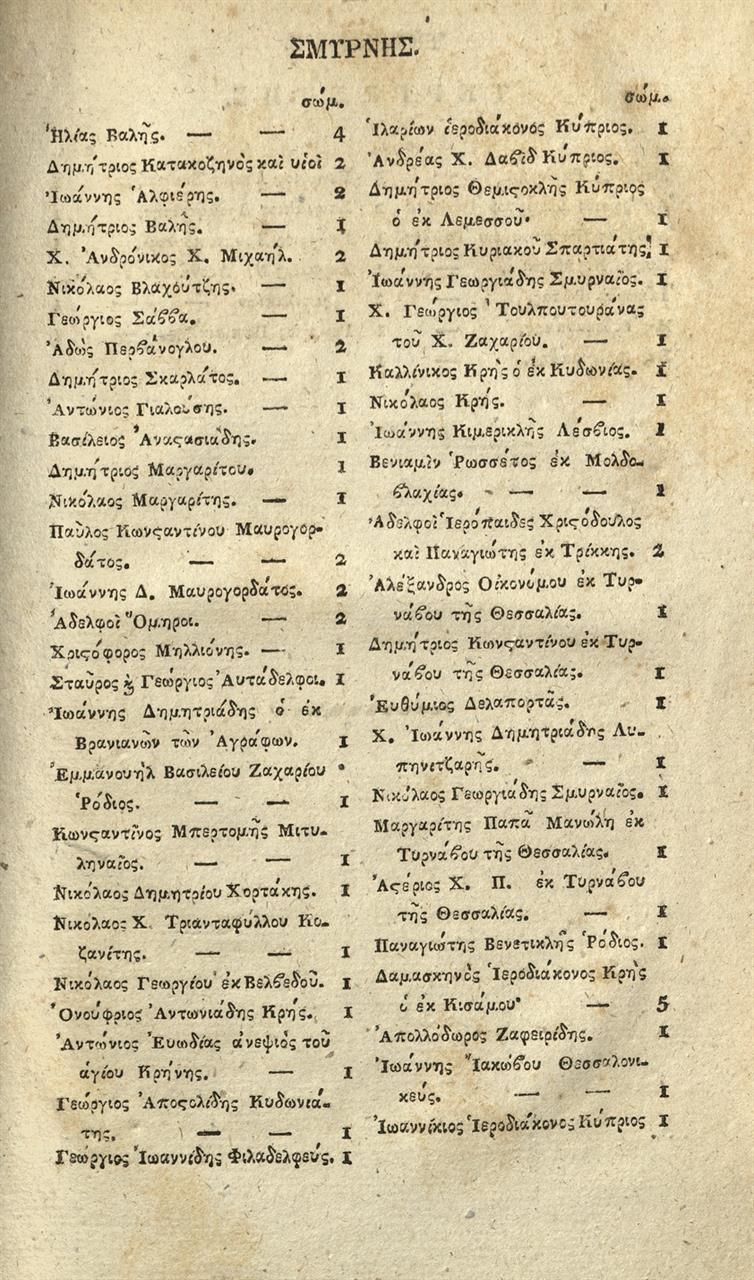 ΣΜΥΡΝΗΣ.
σώμ.
Ἠλίας Βαλῆς. — — 4
Δημήτριος Κατακοζηνὸς καὶ υἱοὶ 2
Ἰωάννης Ἀλφιέρης. — 2
Δημήτριος Βαλῆς. — 1
Χ. Ἀνδρόνικος Χ. Μιχαήλ. 2
Νικόλαος Βλαχούτζης. — 1
Γεώργιος Σάββα. — 1
Ἀδὼς Περβάνογλου. — 2
Δημήτριος Σκαρλάτος. — 1
Ἀντώνιος Γιαλούσης. — 1
Βασίλειος Ἀναϛασιάδης. 1
Δημήτριος Μαργαρίτου. 1
Νικόλαος Μαργαρίτης. — 1
Παῦλος Κωνϛαντίνου Μαυρογορ-
δάτος. — — 2
Ἰωάννης Δ. Μαυρογορδάτος. 2
Ἀδελφοὶ Ὅμηροι. — 2
Χριϛόφορος Μηλλιόνης. — 1
Σταῦρος ϗ Γεώργιος Αὐτάδελφοι. 1
Ἰωάννης Δημητριάδης ὁ ἐκ
Βρανιανῶν τῶν Ἀγράφων. 1
Ἐμμανουὴλ Βασιλείου Ζαχαρίου
Ῥόδιος. — — 1
Κωνϛαντῖνος Μπερτομῆς Μιτυ-
ληναῖος. — — 1
Νικόλαος Δημητρίου Χορτάκης. 1
Νικόλαος Χ. Τριανταφύλλου Κο-
ζανίτης. — — 1
Νικόλαος Γεωργίου ἐκ Βελβεδοῦ. 1
Ὀνούφριος Ἀντωνιάδης Κρής. 1
Ἀντώνιος Ἐυωδίας ἀνεψιὸς τοῦ
ἁγίου Κρήνης. — 1
Γεώργιος Ἀποϛολίδης Κυδωνιά-
της. — — 1
Γεώργιος Ἰωαννίδης Φιλαδελφεύς. 1
σώμ.
Ἱλαρίων ἱεροδιάκονος Κύπριος. 1
Ἀνδρέας Χ. Δαβὶδ Κύπριος. 1
Δημήτριος Θεμιϛοκλῆς Κύπριος
ὁ ἐκ Λεμεσσοῦ. — 1
Δημήτριος Κυριακοῦ Σπαρτιάτης. 1
Ἰωάννης Γεωργιάδης Σμυρναῖος. 1
Χ. Γεώργιος Τουλπουτουράνας
τοῦ Χ. Ζαχαρίου. — 1
Καλλίνικος Κρὴς ὁ ἐκ Κυδωνίας. 1
Νικόλαος Κρής. — 1
Ἰωάννης Κιμερικλῆς Λέσβιος. 1
Βενιαμὶν Ῥωσσέτος ἐκ Μολδο-
βλαχίας. — — 1
Ἀδελφοὶ Ἱερόπαιδες Χριϛόδουλος
καὶ Παναγιώτης ἐκ Τρίκκης. 2
Ἀλέξανδρος Οἰκονόμου ἐκ Τυρ-
νάβου τῆς Θεσσαλίας. 1
Δημήτριος Κωνϛαντίνου ἐκ Τυρ-
νάβου τῆς Θεσσαλίας. 1
Ἐυθύμιος Δελαπορτᾶς. 1
Χ. Ἰωάννης Δημητριάδης Λυ-
πηνιτζαρῆς. — 1
Νικόλαος Γεωργιάδης Σμυρναῖος. 1
Μαργαρίτης Παπᾶ Μανώλη ἐκ
Τυρνάβου τῆς Θεσσαλίας. 1
Ἀϛέριος Χ. Π. ἐκ Τυρνάβου
τῆς Θεσσαλίας. — 1
Παναγιώτης Βενετικλῆς Ῥόδιος. 1
Δαμασκηνὸς Ἱεροδιάκονος Κρὴς
ὁ ἐκ Κισάμου. — 5
Ἀπολλόδωρος Ζαφειρίδης. 1
Ἰωάννης Ἰακώβου Θεσσαλονι-
κεύς. — — 1
Ἰωαννίκιος Ἱεροδιάκονος Κύπριος 1